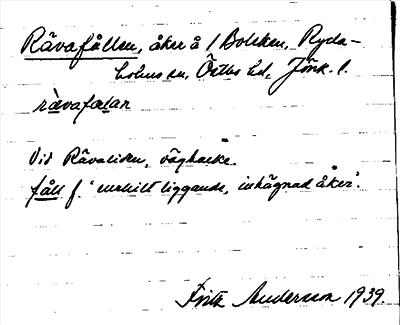 Rävafållen, åker å 1 Bolsken, Ryda-
holms sn, Östbo hd, Jönk. l.
rävafɑlan
Vid Rävaliden, vägbacke.
fåll f. 'enskilt liggande, inhägnad åker'.
Frith Andersson 1939.